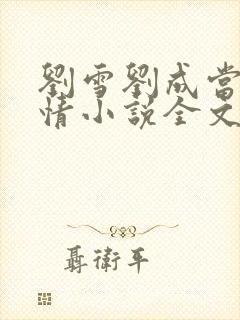 劉雪劉成當
情小說全文
聶衛平